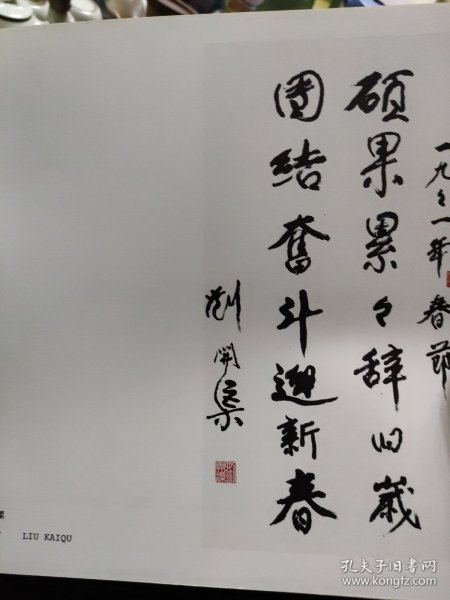 一九々一年春节
硕果累々辞旧岁
团结奋斗迎新春
刘开渠
LIU KAIQU
孔夫子旧书网
www.kongfz.com